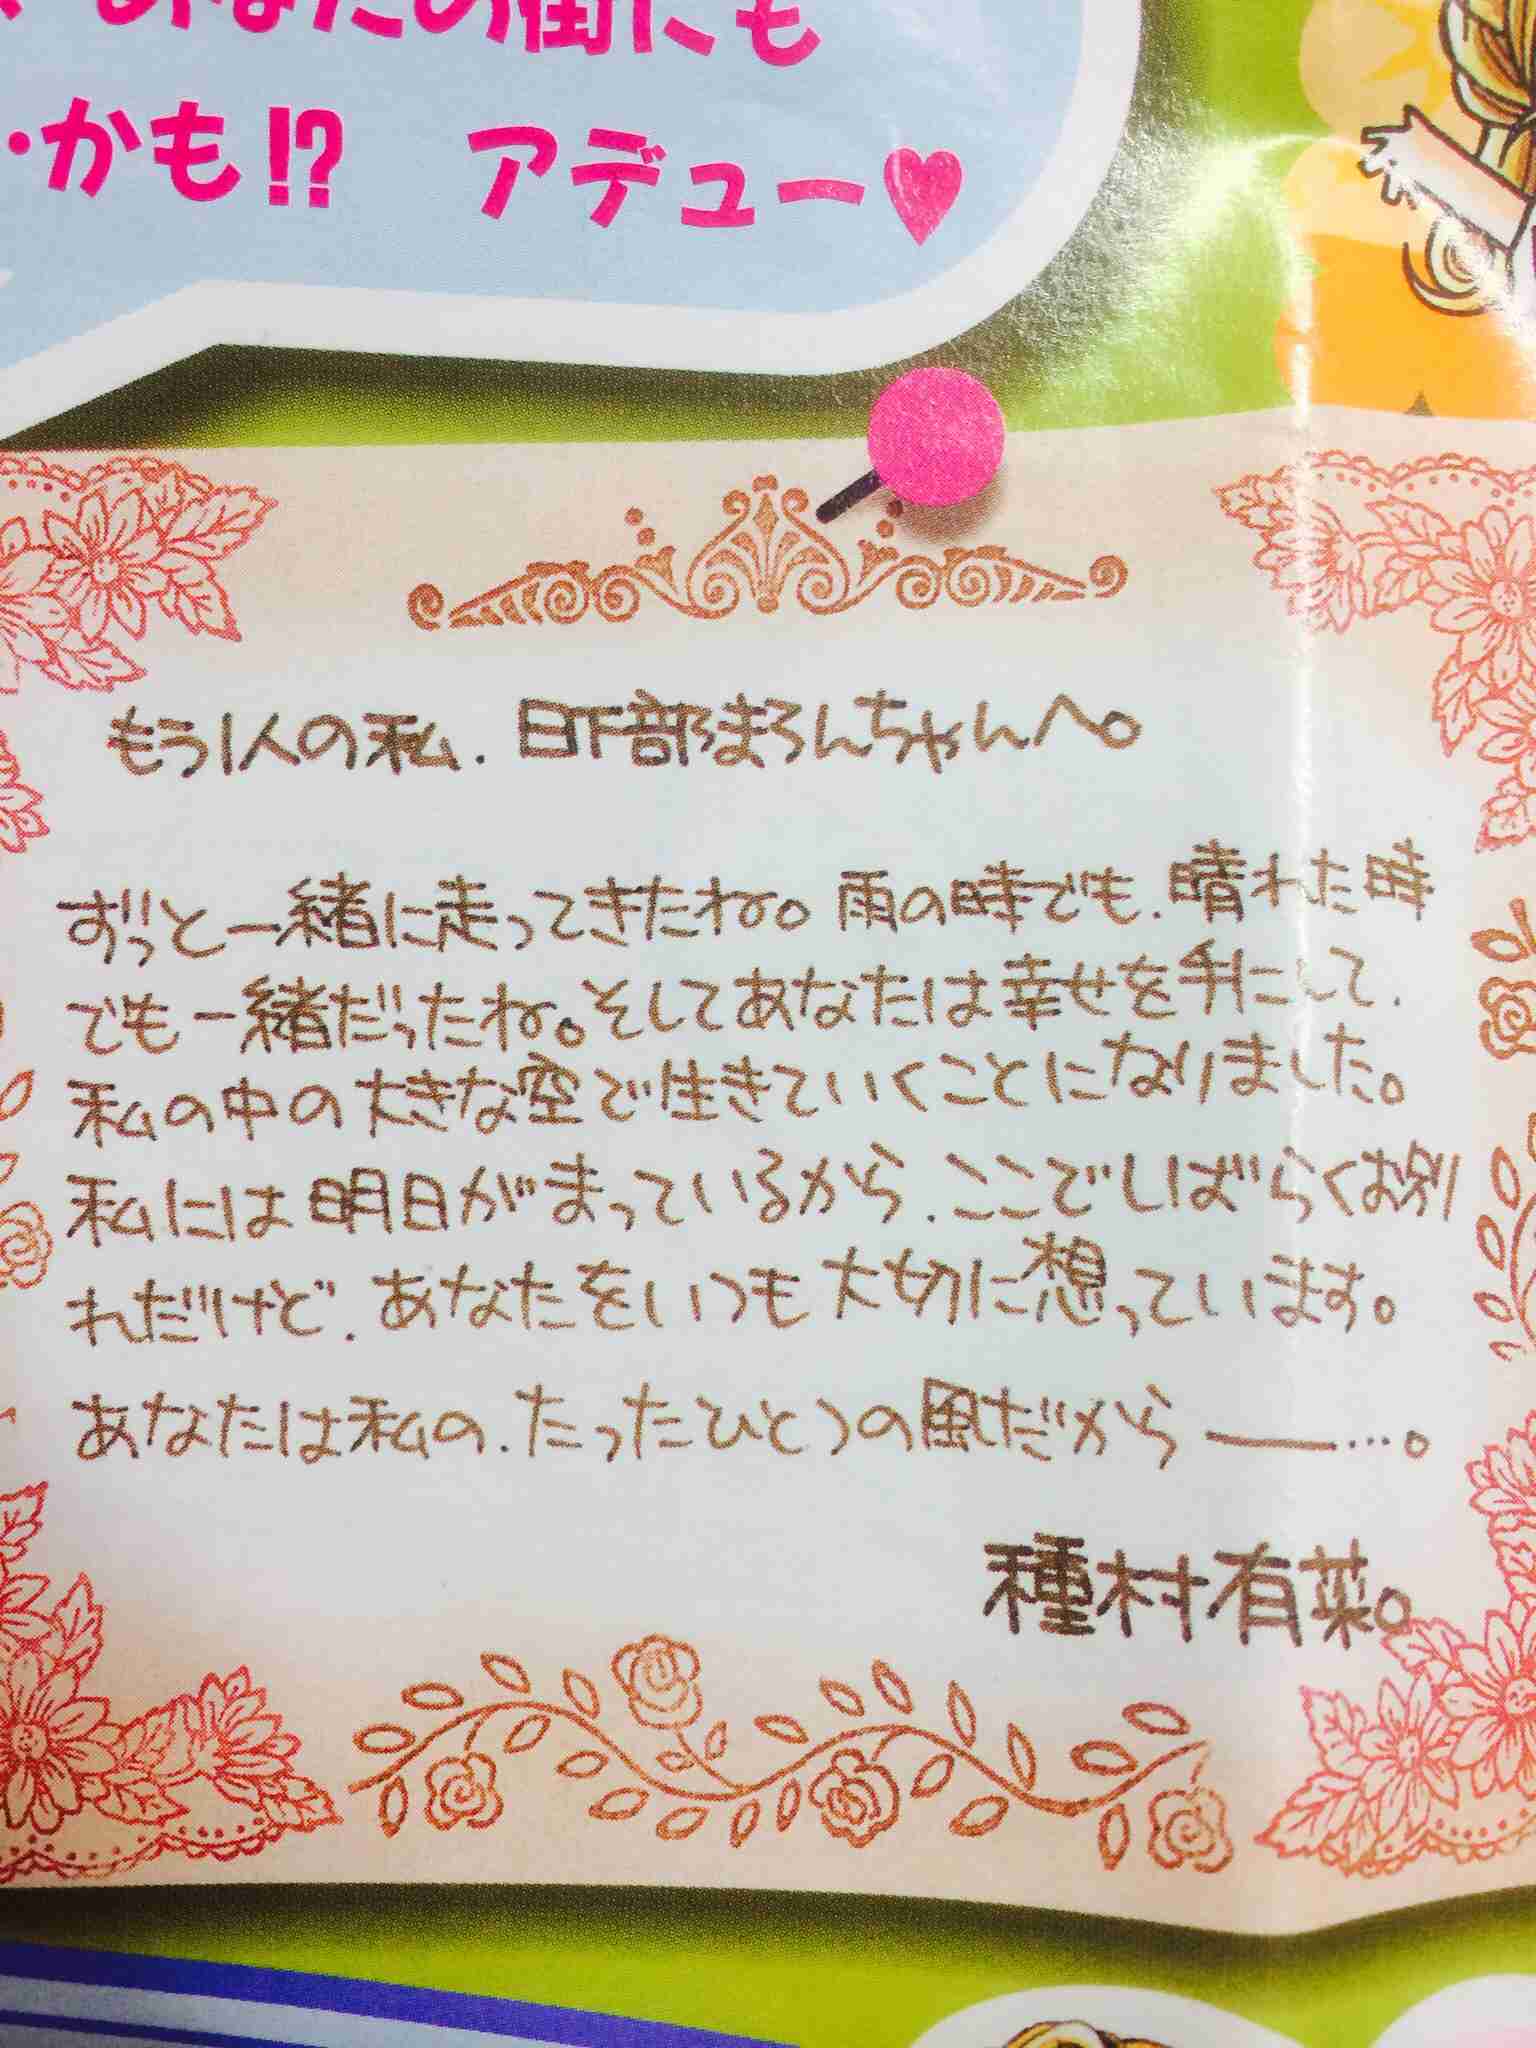 あなたの街にも
…かも!? アデュー♥
もう1人の私、日下部まろんちゃんへ。
ずっと一緒に走ってきたね。雨の時でも、晴れた時
でも一緒だったね。そしてあなたは幸せを手にして、
私の中の大きな空で生きていくことになりました。
私には明日がまっているから、ここでしばらくお別
れだけど、あなたをいつも大切に想っています。
あなたは私の、たったひとつの風だから――…。
種村有菜。